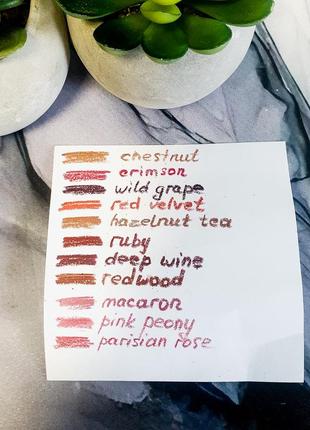 chestnut
crimson
wild grape
red velvet
hazelnut tea
ruby
deep wine
redwood
macaron
pink peony
parisian rose